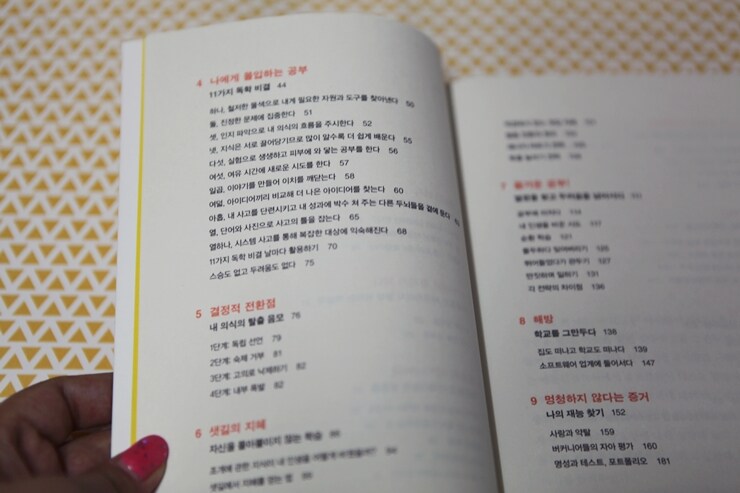 4 나에게 몰입하는 공부
11가지 독학 비결 44
하나, 철저한 물색으로 내게 필요한 자원과 도구를 찾아낸다 50
둘, 진정한 문제에 집중한다 51
셋, 인지 파악으로 내 의식의 흐름을 주시한다 52
넷, 지식은 서로 끌어당기므로 많이 알수록 더 쉽게 배운다 55
다섯, 실험으로 생생하고 피부에 와 닿는 공부를 한다 56
여섯, 여유 시간에 새로운 시도를 한다 57
일곱, 이야기를 만들어 이치를 깨닫는다 58
여덟, 아이디어끼리 비교해 더 나은 아이디어를 찾는다 60
아홉, 내 사고를 단련시키고 내 성과에 박수 쳐 주는 다른 두뇌들을 곁에 둔다
열, 단어와 사진으로 사고의 틀을 잡는다 65
열하나, 시스템 사고를 통해 복잡한 대상에 익숙해진다 68
11가지 독학 비결 날마다 활용하기 70
스승도 없고 두려움도 없다 75
5 결정적 전환점
내 의식의 탈출 음모 76
1단계: 독립 선언 79
2단계: 숙제 거부 81
3단계: 고의로 낙제하기 82
4단계: 내부 폭발 82
6 샛길의 지혜
자신을 몰아붙이지 않는 학습 86
조개에 관한 지식이 내 인생을 어떻게 바꿨을까?
샛길에서 지혜를 얻는 법
7 즐거운 공부!
공부에 미치다 114
내 인생을 바꾼 117
순환 학습 121
125
127
131
각 전략의 차이점 136
8 해방
학교를 그만두다 138
집도 떠나고 학교도 떠나다 139
소프트웨어 업계에 들어서다 147
9 멍청하지 않다는 증거
나의 재능 찾기 152
사랑과 약탈 159
버커니어들의 자아 평가 160
명성과 테스트, 포트폴리오 181